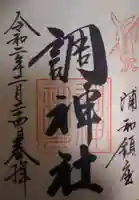 浦和鎮座
調神社
令和二年一月二十四日奉拝